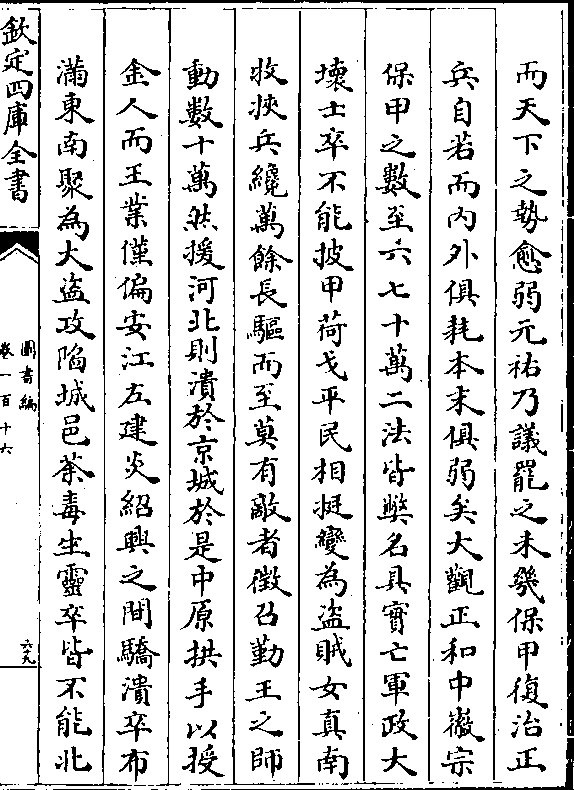 而天下之勢愈弱元祐乃議罷之未幾保甲復治正
兵自若而内外俱耗本末俱弱矣大觀正和中徽宗
保甲之數至六七十萬二法皆弊名具實亡軍政大
壊士卒不能披甲荷戈平民相挺變為盗賊女真南
牧挾兵纔萬餘長驅而至莫有敵者徴召勤王之師
動數十萬然援河北則潰於京城於是中原拱手以授
金人而王業僅偏安江左建炎紹興之間驕潰卒布
滿東南聚為大盗攻陷城邑荼毒生靈卒皆不能北
欽定四庫全書
圖書編
卷一百十六
六九